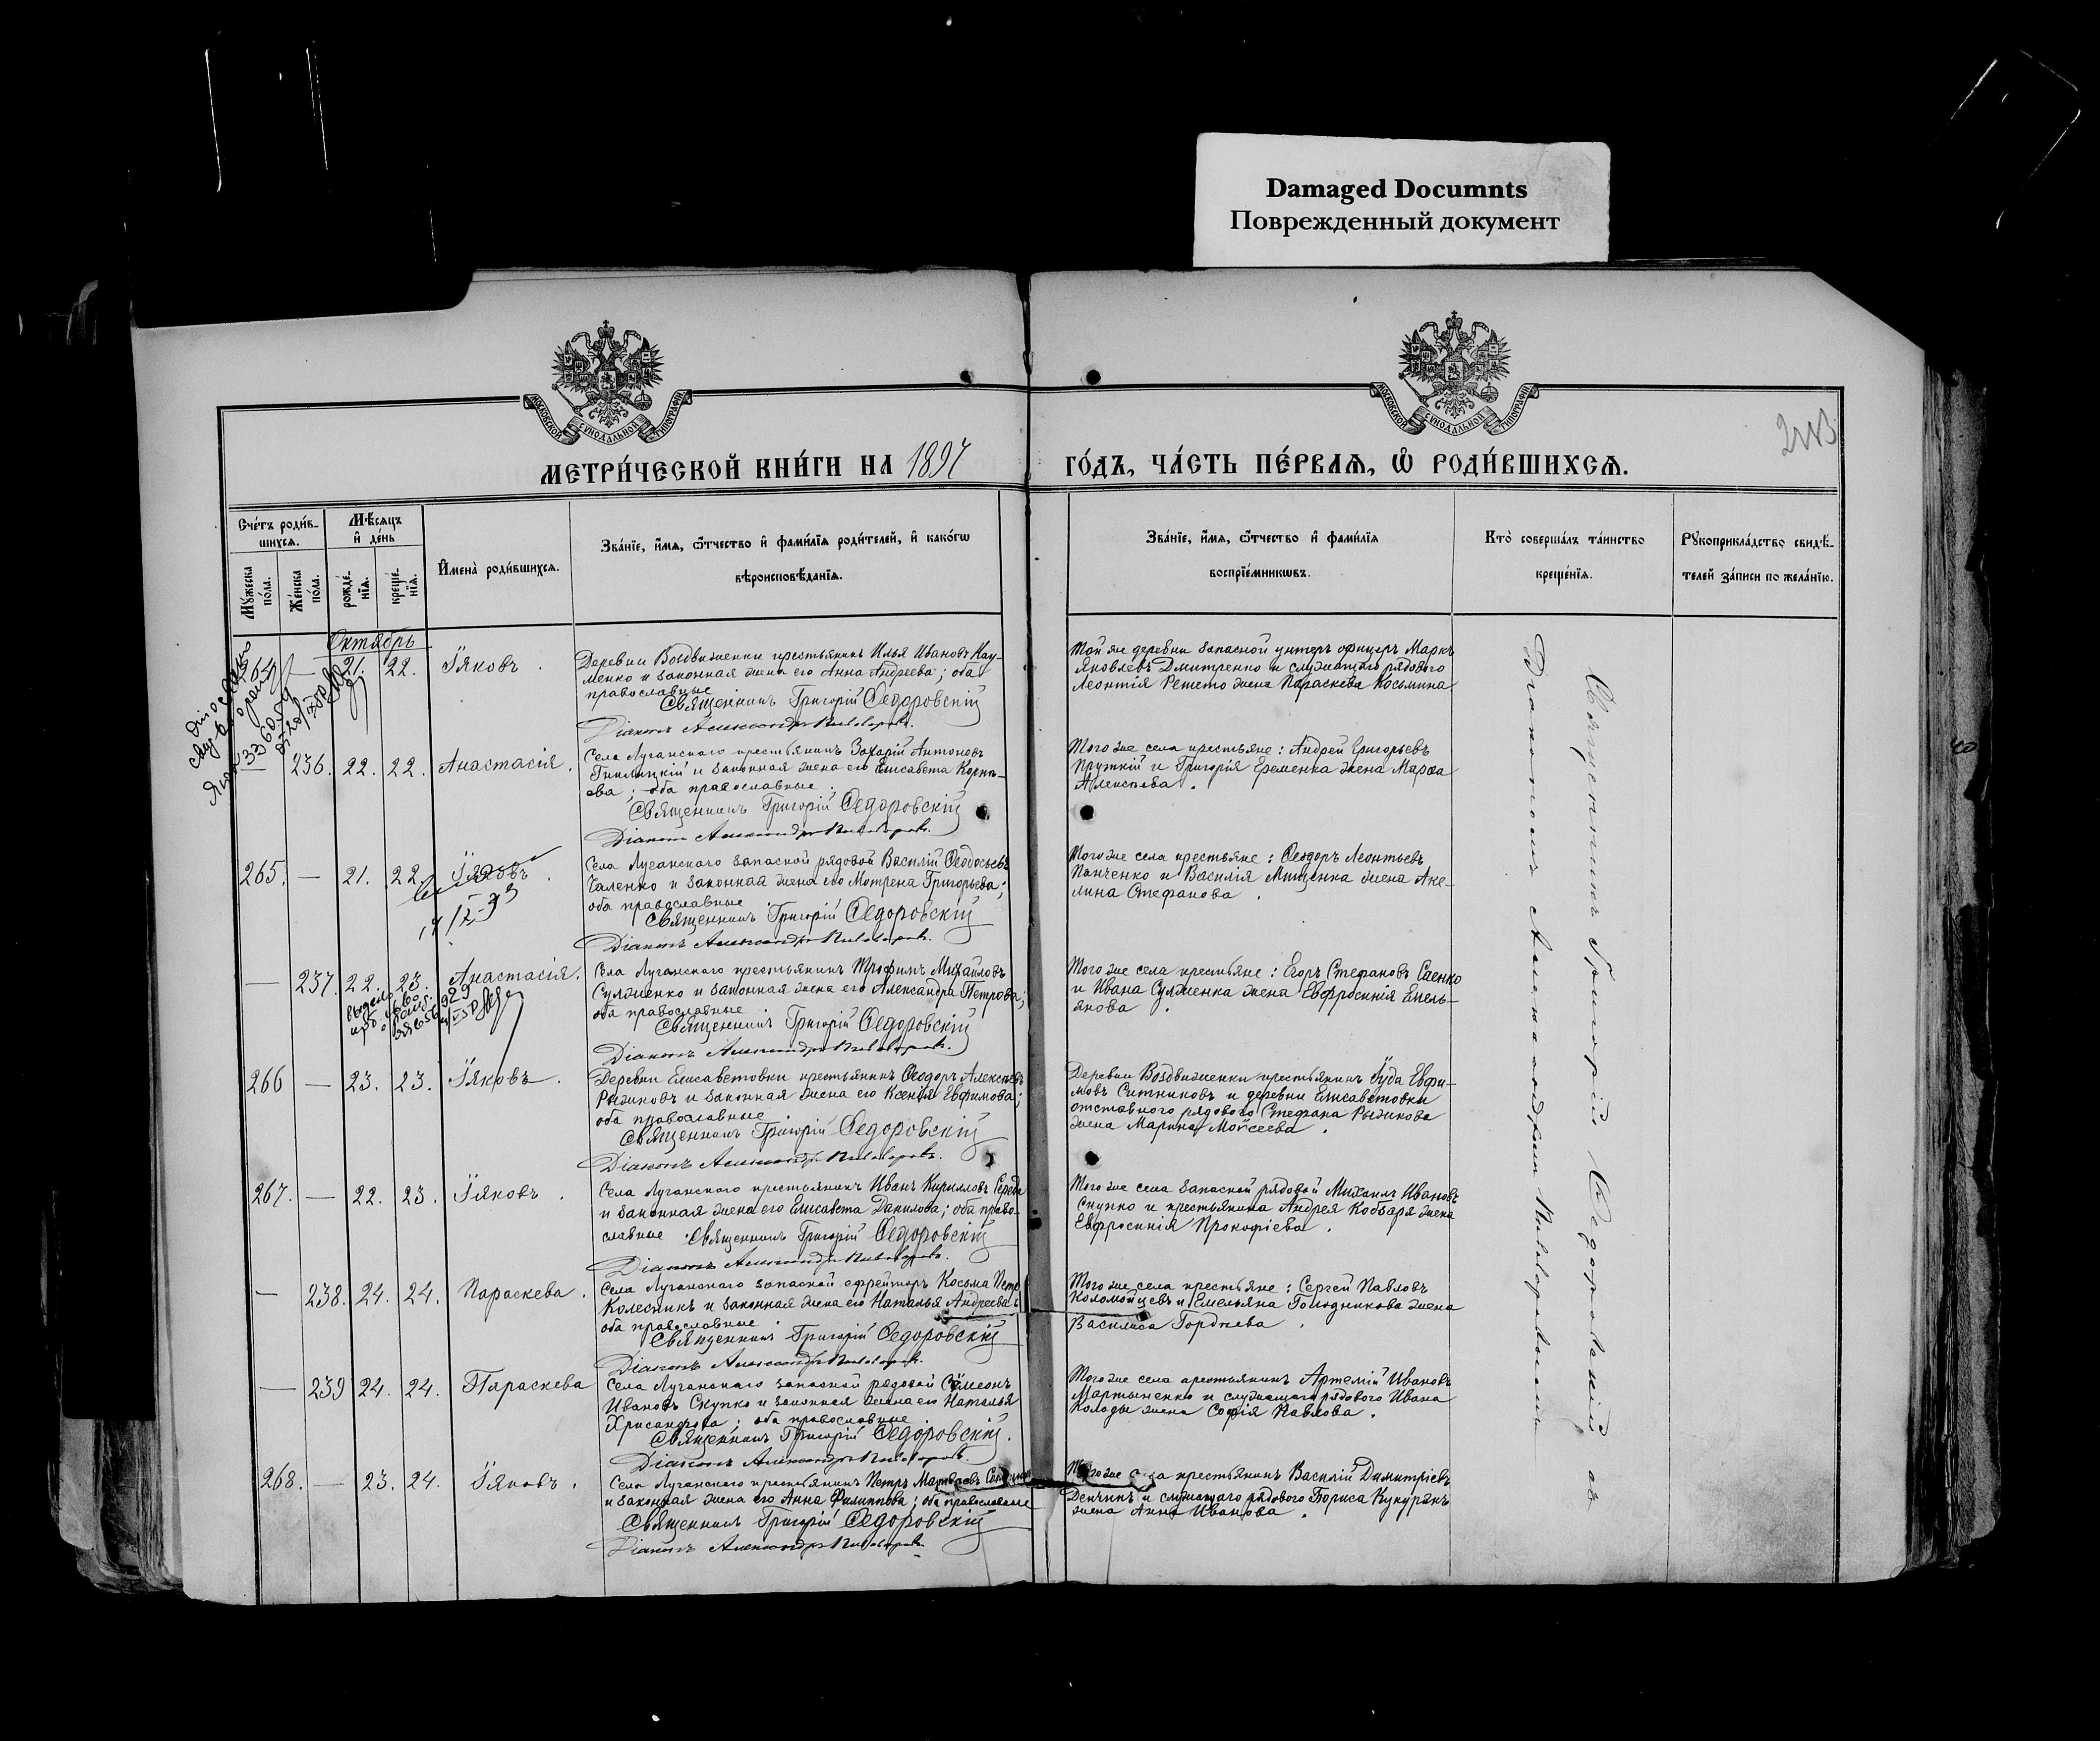 Damaged Documnts
Поврежденный документ
МОСКОВСКОЙ СѴНОДАЛЬНОЙ ТИПОГРАФІИ
МОСКОВСКОЙ СѴНОДАЛЬНОЙ ТИПОГРАФІИ
МЕТРИ́ЧЕСКОЙ КНИ́ГИ НА 1897
ГО́ДЪ, ЧА́СТЬ ПЕ́РВАѦ, Ѽ РОДИ́ВШИХСѦ.
Сче́тъ роди́в-
шихсѧ.
Мꙋ́жеска по́ла.
Же́нска по́ла.
Мѣ́сѧцъ
и҆ де́нь
рожде́-
нїѧ.
креще́-
нїѧ.
И҆мена̀ роди́вшихсѧ.
Зва́нїе, и҆́мѧ, ѻ҆́тчество и҆ фами́лїѧ роди́телей, и҆ како́гѡ
вѣроисповѣ́данїѧ.
Зва́нїе, и҆́мѧ, ѻ҆́тчество и҆ фами́лїѧ
воспрїе́мникѡвъ.
Кто̀ соверша́лъ та́инство
креще́нїѧ.
Рꙋкоприкла́дство свидѣ́-
телей за́писи по жела́нїю.
Октябрь
264 — 21. 22. Іяковъ.
Деревни Воздвиженки крестьянинъ Илья Ивановъ Нау-
менко и законная жена его Анна Андреева; оба
православные
Священникъ Григорій Ѳедоровскій
Діаконъ Александръ Пивоваровъ.
Той же деревни запасной унтеръ офицеръ Маркъ
Яковлевъ Дмитренко и служащаго рядового
Леонтія Решето жена Параскева Косьмина
— 236. 22. 22. Анастасія.
Села Луганскаго крестьянинъ Захарій Антоновъ
Гнилицкій и законная жена его Елисавета Корнѣ-
ева; оба православные.
Священникъ Григорій Ѳедоровскій
Діаконъ Александръ Пивоваровъ.
Того же села крестьяне: Андрей Григорьевъ
Пружкій и Григорія Еременка жена Марѳа
Алексѣева.
265. — 21. 22. Іяковъ.
Села Луганскаго запасной рядовой Василій Ѳеодосьевъ
Чаленко и законная жена его Мотрена Григорьева;
оба православные.
Священникъ Григорій Ѳедоровскій
Діаконъ Александръ Пивоваровъ.
Того же села крестьяне: Ѳеодоръ Леонтьевъ
Панченко и Василія Мищенка жена Аке-
лина Стефанова.
— 237. 22. 23. Анастасія.
Села Луганскаго крестьянинъ Трофимъ Михайловъ
Сулженко и законная жена его Александра Петрова;
оба православные
Священникъ Григорій Ѳедоровскій
Діаконъ Александръ Пивоваровъ.
Того же села крестьяне: Егоръ Стефановъ Саенко
и Ивана Сулженка жена Евфросинія Емель-
янова.
266 — 23. 23. Іяковъ.
Деревни Елисаветовки крестьянинъ Ѳеодоръ Алексѣевъ
Рыжиковъ и законная жена его Ксенія Евфимова;
оба православные.
Священникъ Григорій Ѳедоровскій
Діаконъ Александръ Пивоваровъ.
Деревни Воздвиженки крестьянинъ Іуда Евфи-
мовъ Ситниковъ и деревни Елисаветовки
отставного рядового Стефана Рыжикова
жена Марина Моѵсеева.
267. — 22. 23. Іяковъ.
Села Луганскаго крестьянинъ Иванъ Кирилловъ Середа
и законная жена его Елисавета Данилова; оба право-
славные. Священникъ Григорій Ѳедоровскій
Діаконъ Александръ Пивоваровъ.
Того же села запасной рядовой Михаилъ Ивановъ
Скупко и крестьянина Андрея Кобзаря жена
Евфросинія Прокофіева.
— 238. 24. 24. Параскева.
Села Луганскаго запасной ефрейторъ Косьма Петр
Колесникъ и законная жена его Наталья Андреева;
оба православные.
Священникъ Григорій Ѳедоровскій
Діаконъ Александръ Пивоваровъ.
Того же села крестьяне: Сергей Павловъ
Коломойцевъ и Емельяна Голодникова жена
Василиса Гордѣева.
— 239 24. 24. Параскева
Села Луганскаго запасной рядовой Сѵмеонъ
Ивановъ Скупко и законная жена его Наталья
Хрисанфова; оба православные.
Священникъ Григорій Ѳедоровскій.
Діаконъ Александръ Пивоваровъ.
Того же села крестьянинъ Артемій Ивановъ
Мартыненко и служащаго рядового Ивана
Колоды жена Софія Павлова.
268. — 23. 24. Іяковъ.
Села Луганскаго крестьянинъ Петръ Матвѣевъ
и законная жена его Анна Филиппова; оба православные
Священникъ Григорій Ѳедоровскій
Діаконъ Александръ Пивоваровъ.
Того же села крестьянинъ Василій Димитріевъ
Денчикъ и служащаго рядового Бориса Кукурякъ
жена Анна Иванова.
Священникъ Григорій Ѳедоровскій съ
Діакономъ Александромъ Пивоваровымъ